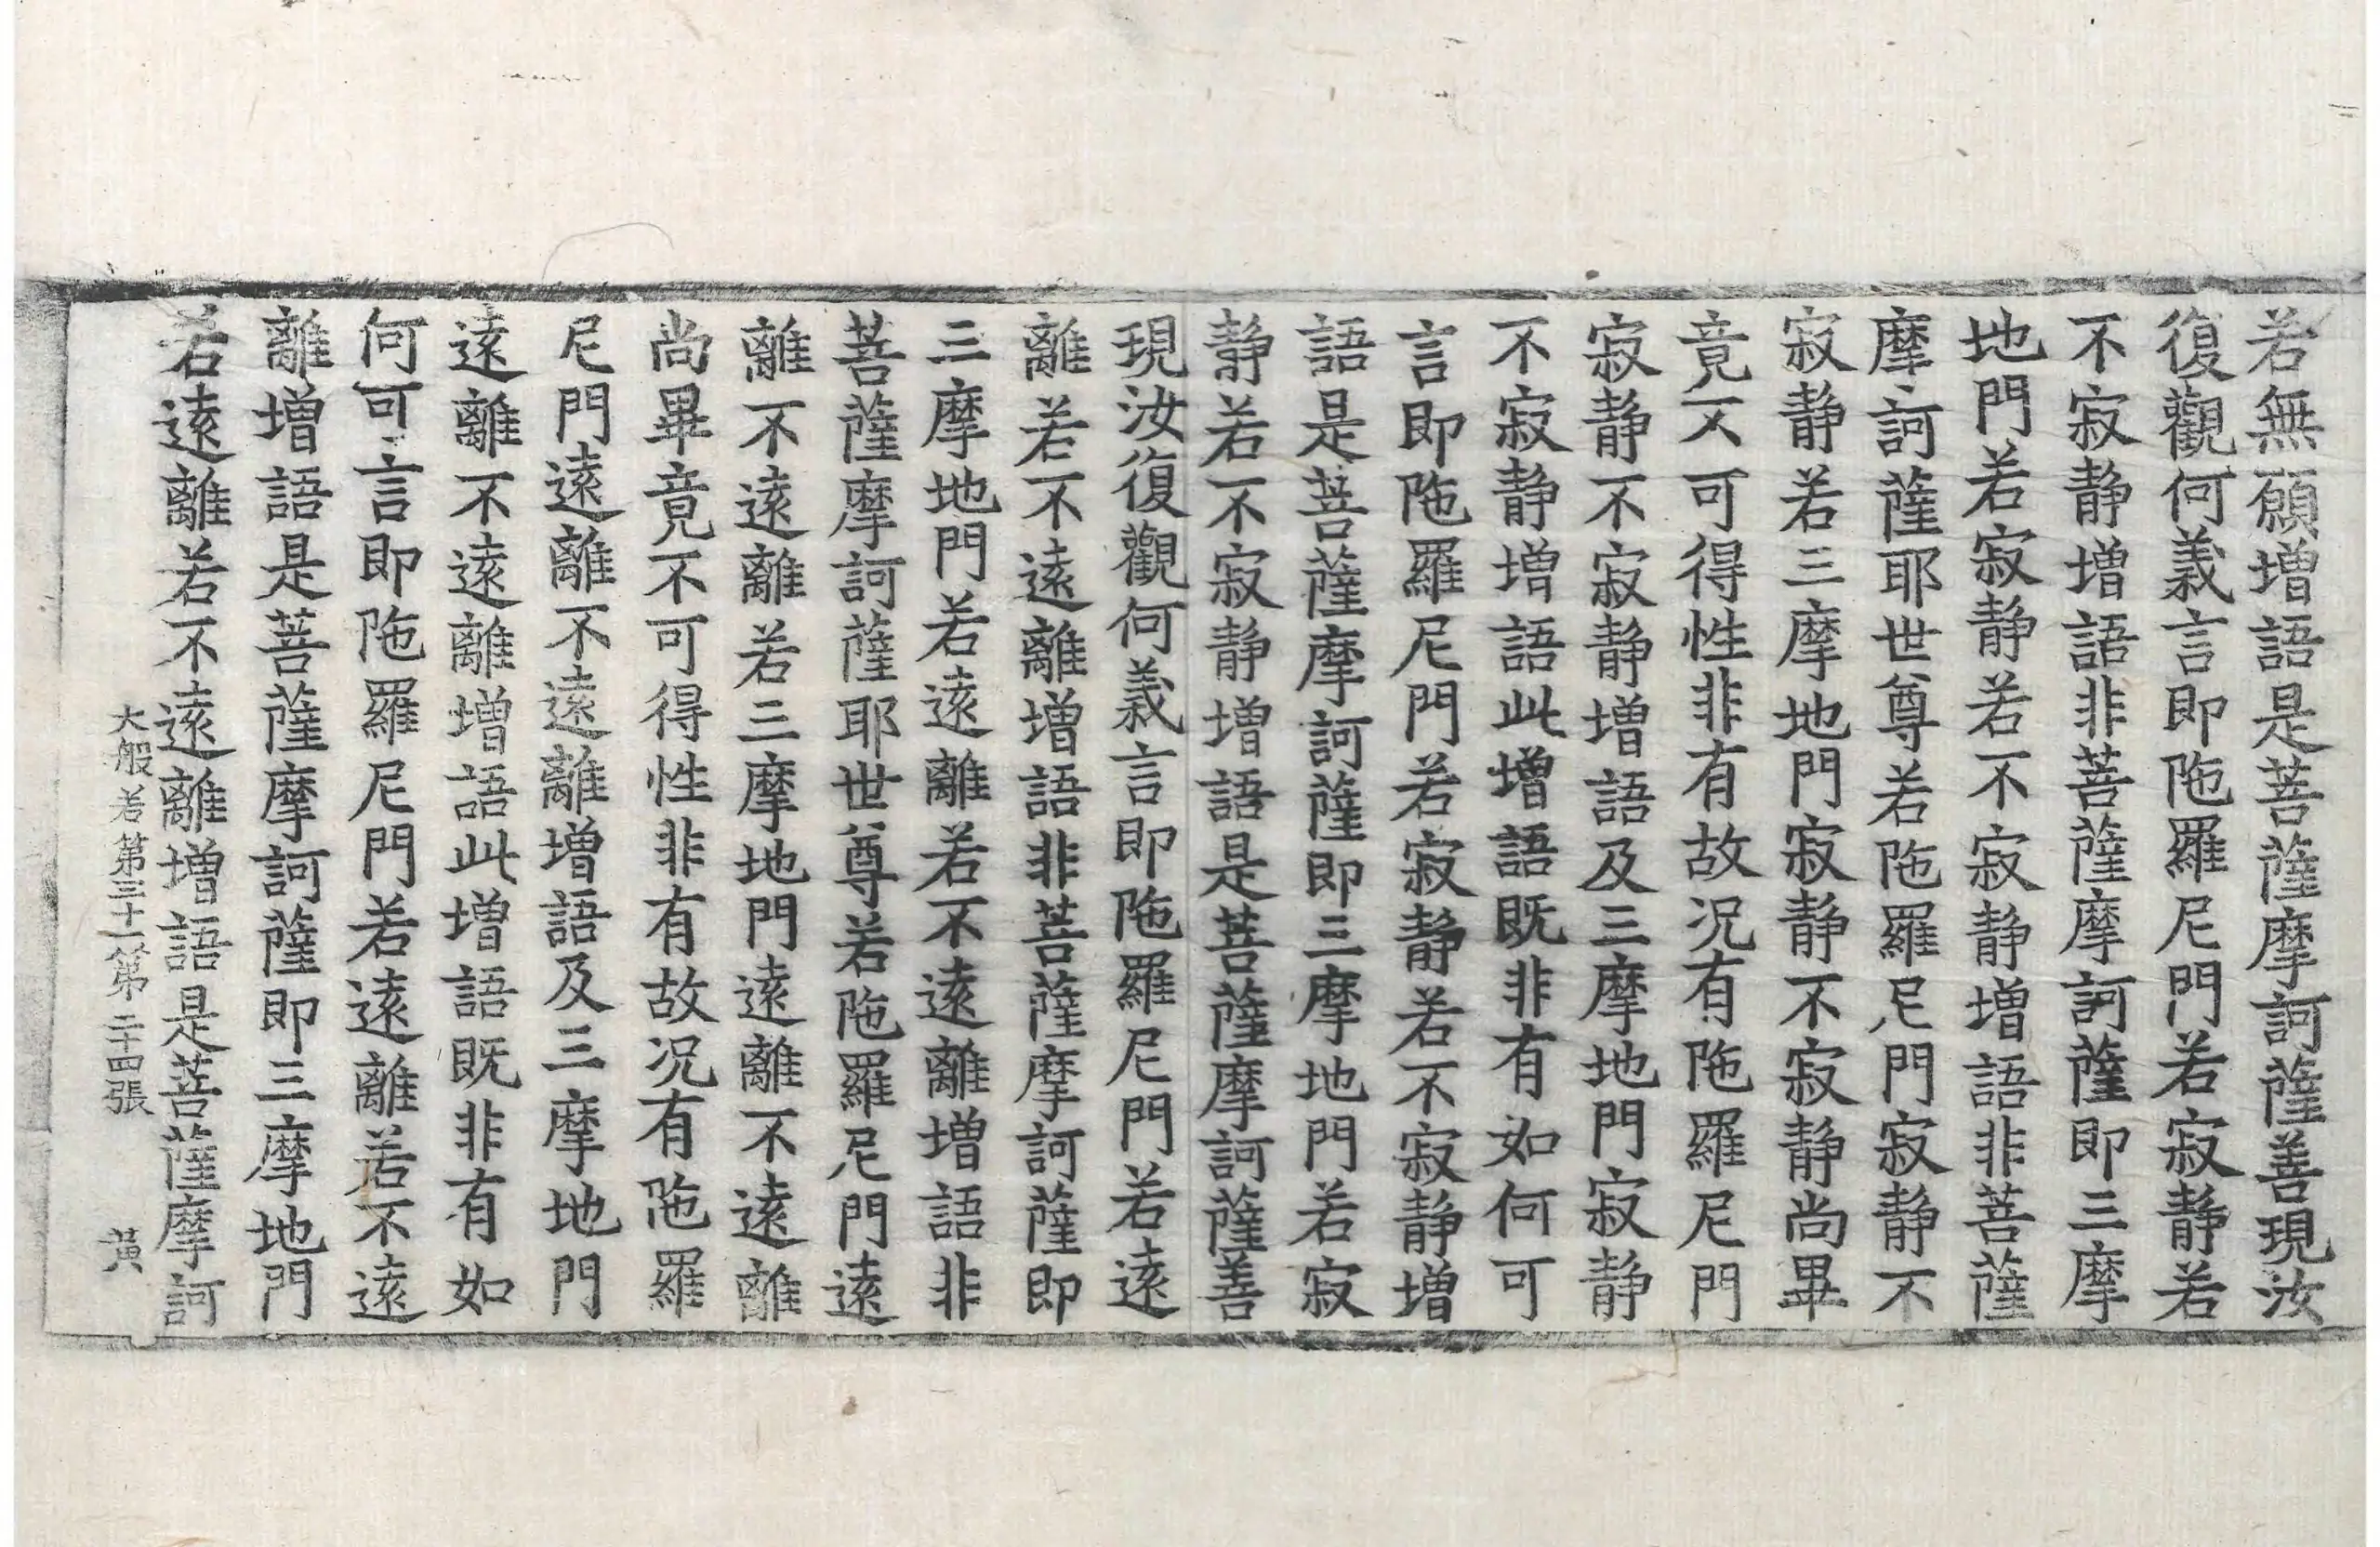 若無願增語是菩薩摩訶薩善現汝
復觀何義言即陁羅尼門若寂静若
不寂静增語非菩薩摩訶薩即三摩
地門若寂静若不寂静增語非菩薩
摩訶薩耶世尊若陁羅尼門寂静不
寂静若三摩地門寂静不寂静尚畢
竟不可得性非有故况有陁羅尼門
寂静不寂静增語及三摩地門寂静
不寂静增語此增語既非有如何可
言即陁羅尼門若寂静若不寂静增
語是菩薩摩訶薩即三摩地門若寂
静若不寂静增語是菩薩摩訶薩善
現汝復觀何義言即陁羅尼門若遠
離若不遠離增語非菩薩摩訶薩即
三摩地門若遠離若不遠離增語非
菩薩摩訶薩耶世尊若陁羅尼門遠
離不遠離若三摩地門遠離不遠離
尚畢竟不可得性非有故况有陁羅
尼門遠離不遠離增語及三摩地門
遠離不遠離增語此增語既非有如
何可言即陁羅尼門若遠離若不遠
離增語是菩薩摩訶薩即三摩地門
若遠離若不遠離增語是菩薩摩訶
大般若第三十一第二十四張 黃